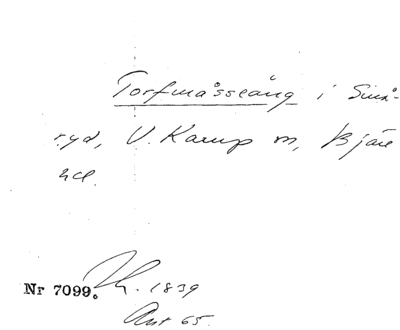 Torfmåsseäng i Små-
ryd, V. Karup sn, Bjäre
hd.
Nr 7099. Lh. 1839
Akt 65.